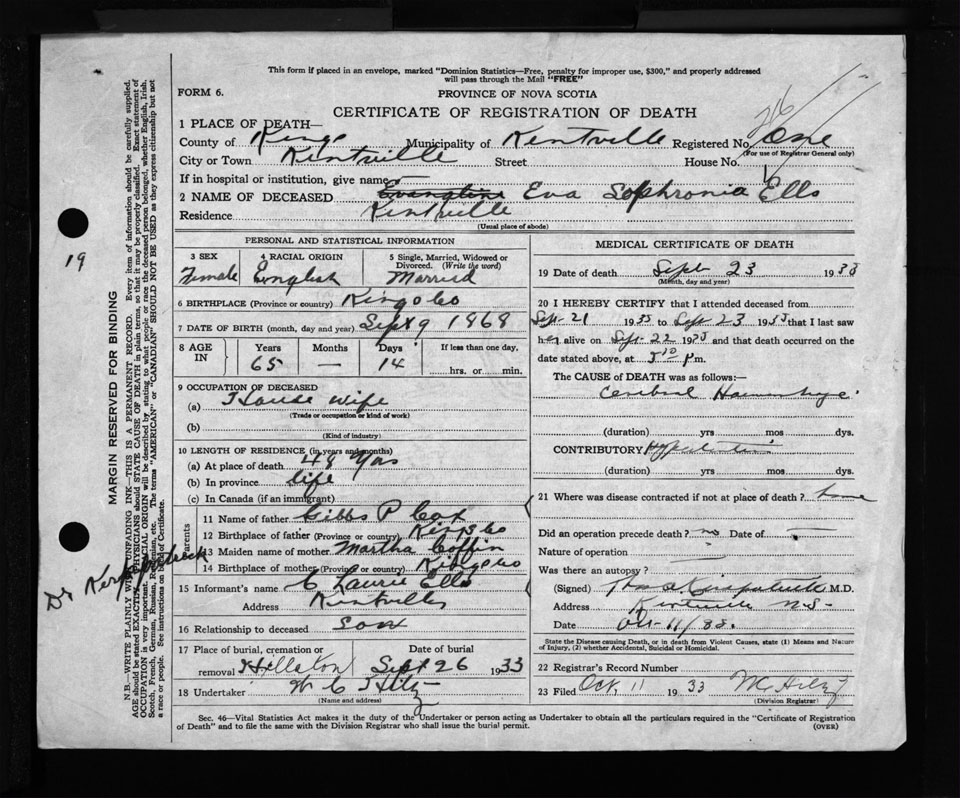 This form if placed in an envelope, marked "Dominion Statistics—Free, penalty for improper use, $300," and properly addressed
will pass through the Mail "FREE"
FORM 6.
PROVINCE OF NOVA SCOTIA
CERTIFICATE OF REGISTRATION OF DEATH
26
1 PLACE OF DEATH—
County of Kings Municipality of Kentville Registered No. One
(For use of Registrar General only)
City or Town Kentville Street House No.
If in hospital or institution, give name
2 NAME OF DECEASED Evangline Eva Sophronia Ells
Residence Kentville
(Usual place of abode)
PERSONAL AND STATISTICAL INFORMATION
3 SEX 4 RACIAL ORIGIN 5 Single, Married, Widowed or Divorced. (Write the word)
Female English Married
6 BIRTHPLACE (Province or country) Kings Co
7 DATE OF BIRTH (month, day and year) Sept 9 1868
8 AGE IN Years Months Days If less than one day,
65 — 14 hrs. or min.
9 OCCUPATION OF DECEASED
(a) House wife
(Trade or occupation or kind of work)
(b)
(Kind of industry)
10 LENGTH OF RESIDENCE (in years and months)
(a) At place of death 48 yrs
(b) In province life
(c) In Canada (if an immigrant)
Parents
11 Name of father Gibbs P Cox
12 Birthplace of father (Province or country) Kings Co
13 Maiden name of mother Martha Coffin
14 Birthplace of mother (Province or country) Kings Co
15 Informant's name C Laurie Ells
Address Kentville
16 Relationship to deceased Son
17 Place of burial, cremation or removal Hillaton Date of burial Sept 26 1933
18 Undertaker W C Hiltz
(Name and address)
MEDICAL CERTIFICATE OF DEATH
19 Date of death Sept 23 1933
(Month, day and year)
20 I HEREBY CERTIFY that I attended deceased from
Sept 21 1933 to Sept 23 1933 that I last saw
her alive on Sept 22 1933 and that death occurred on the
date stated above, at 5 10 p m.
The CAUSE of DEATH was as follows:—
Cerebral Haemorrhage
(duration) yrs mos dys.
CONTRIBUTORY
(duration) yrs mos dys.
21 Where was disease contracted if not at place of death? home
Did an operation precede death? no Date of —
Nature of operation —
Was there an autopsy? —
(Signed) M.D.
Address Kentville N.S.
Date Oct 11/33.
State the Disease causing Death, or in death from Violent Causes, state (1) Means and Nature
of Injury, (2) whether Accidental, Suicidal or Homicidal.
22 Registrar's Record Number
23 Filed Oct, 11 1933 W C Hiltz
(Division Registrar)
Sec. 46—Vital Statistics Act makes it the duty of the Undertaker or person acting as Undertaker to obtain all the particulars required in the "Certificate of Registration
of Death" and to file the same with the Division Registrar who shall issue the burial permit.
(OVER)
19
MARGIN RESERVED FOR BINDING
Dr Kirkpatrick
N.B.—WRITE PLAINLY WITH UNFADING INK—THIS IS A PERMANENT RECORD. Every item of information should be carefully supplied.
AGE should be stated EXACTLY. PHYSICIANS should STATE CAUSE OF DEATH in plain terms, so that it may be properly classified. Exact statement of
OCCUPATION is very important. RACIAL ORIGIN will be described by stating to what people or race the deceased person belonged, whether English, Irish,
Scotch, French, German, Russian, Ruthenian, etc. The terms "AMERICAN" or "CANADIAN" SHOULD NOT BE USED as they express citizenship but not
a race or people. See instructions on back of Certificate.